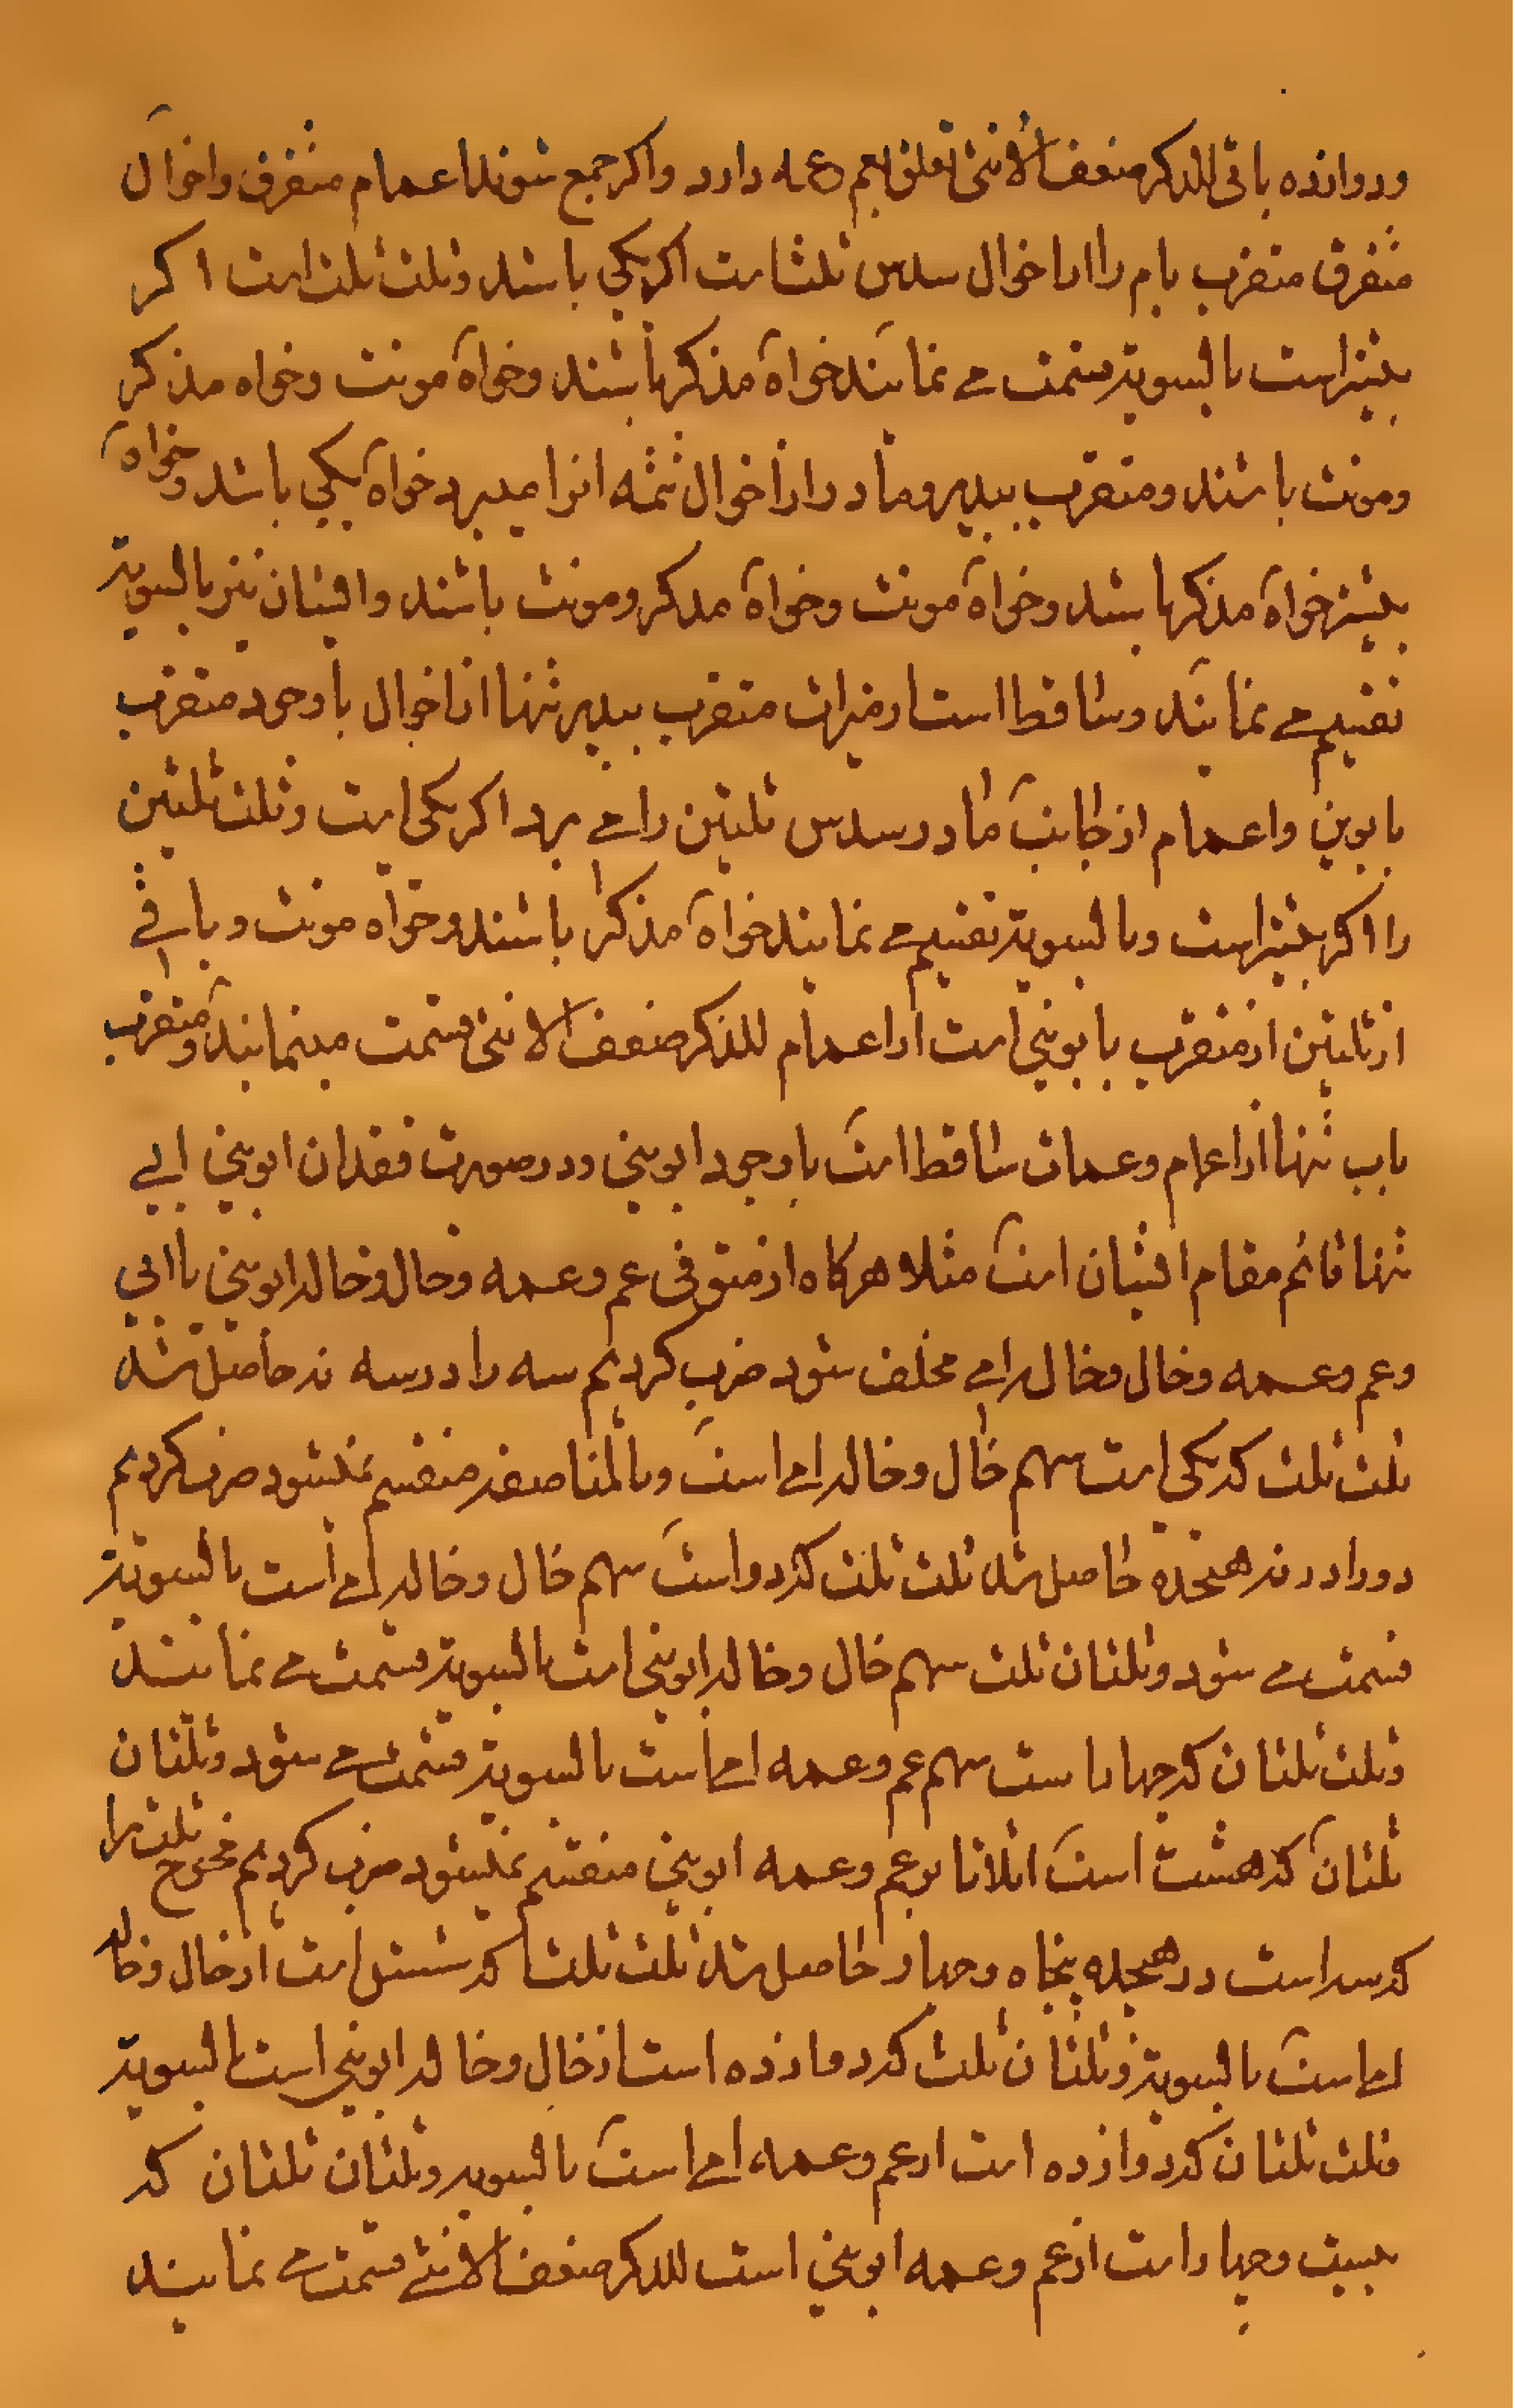 ودوازده باقی للذکر ضعف الانثی تعلق بعم وعمه دارد واکر جمع شوند اعمام متفرق واخوال
متفرق متقرب بام را از اخوال سدس ثلث است اکر یکی باشد وثلث ثلث است اکر
بیشتر است بالسویه قسمت مے نمایند خواه مذکر باشند وخواه مونث وخواه مذکر
ومونث باشند ومتقرب بپدر ومادر را از اخوال تتمه انرا میبرد خواه یکی باشد وخواه
بیشتر خواه مذکر باشند وخواه مونث وخواه مذکر ومونث باشند وایشان نیز بالسویه
تقسیم مے نمایند وساقط است از میراث متقرب بپدر تنها از اخوال با وجود متقرب
بابوین واعمام از جانب مادر سدس ثلثین را مے برد اکر یکی است وثلث ثلثین
را اکر بیشتر است وبالسویه تقسیم مے نمایند خواه مذکر باشند وخواه مونث وباقے
از ثلثین از متقرب بابوینی است از اعمام للذکر ضعف الانثی قسمت مینمایند ومتقرب
باب تنها از اعمام وعمات ساقط است با وجود ابوینی ودر صورت فقدان ابوینی ابے
تنها قائم مقام ایشان است مثلا هرکاه از متوفی عم وعمه وخال وخاله ابوینی یا ابی
وعم وعمه وخال وخاله امے مخلف شود ضرب کردیم سه را در سه نه حاصل شد
ثلث ثلث که یکی است سهم خال وخاله امے است وبالمناصفه منقسم نمیشود ضرب کردیم
دو را در نه هیجده حاصل شد ثلث ثلث که دو است سهم خال وخاله امے است بالسویه
قسمت مے شود وثلثان ثلث سهم خال وخاله ابوینی است بالسویه قسمت مے نمایند
وثلث ثلثان که چهار است سهم عم وعمه امے است بالسویه قسمت مے شود وثلثان
ثلثان که هشت است اثلاثا بر عم وعمه ابوینی منقسم نمیشود ضرب کردیم مخرج ثلث را
که سه است در هیجده پنجاه وچهار حاصل شد ثلث ثلث که شش است از خال وخاله
امے است بالسویه وثلثان ثلث که دوازده است از خال وخاله ابوینی است بالسویه
وثلث ثلثان که دوازده است از عم وعمه امے است بالسویه وثلثان ثلثان که
بیست وچهار است از عم وعمه ابوینی است للذکر ضعف الانثے قسمت مے نمایند